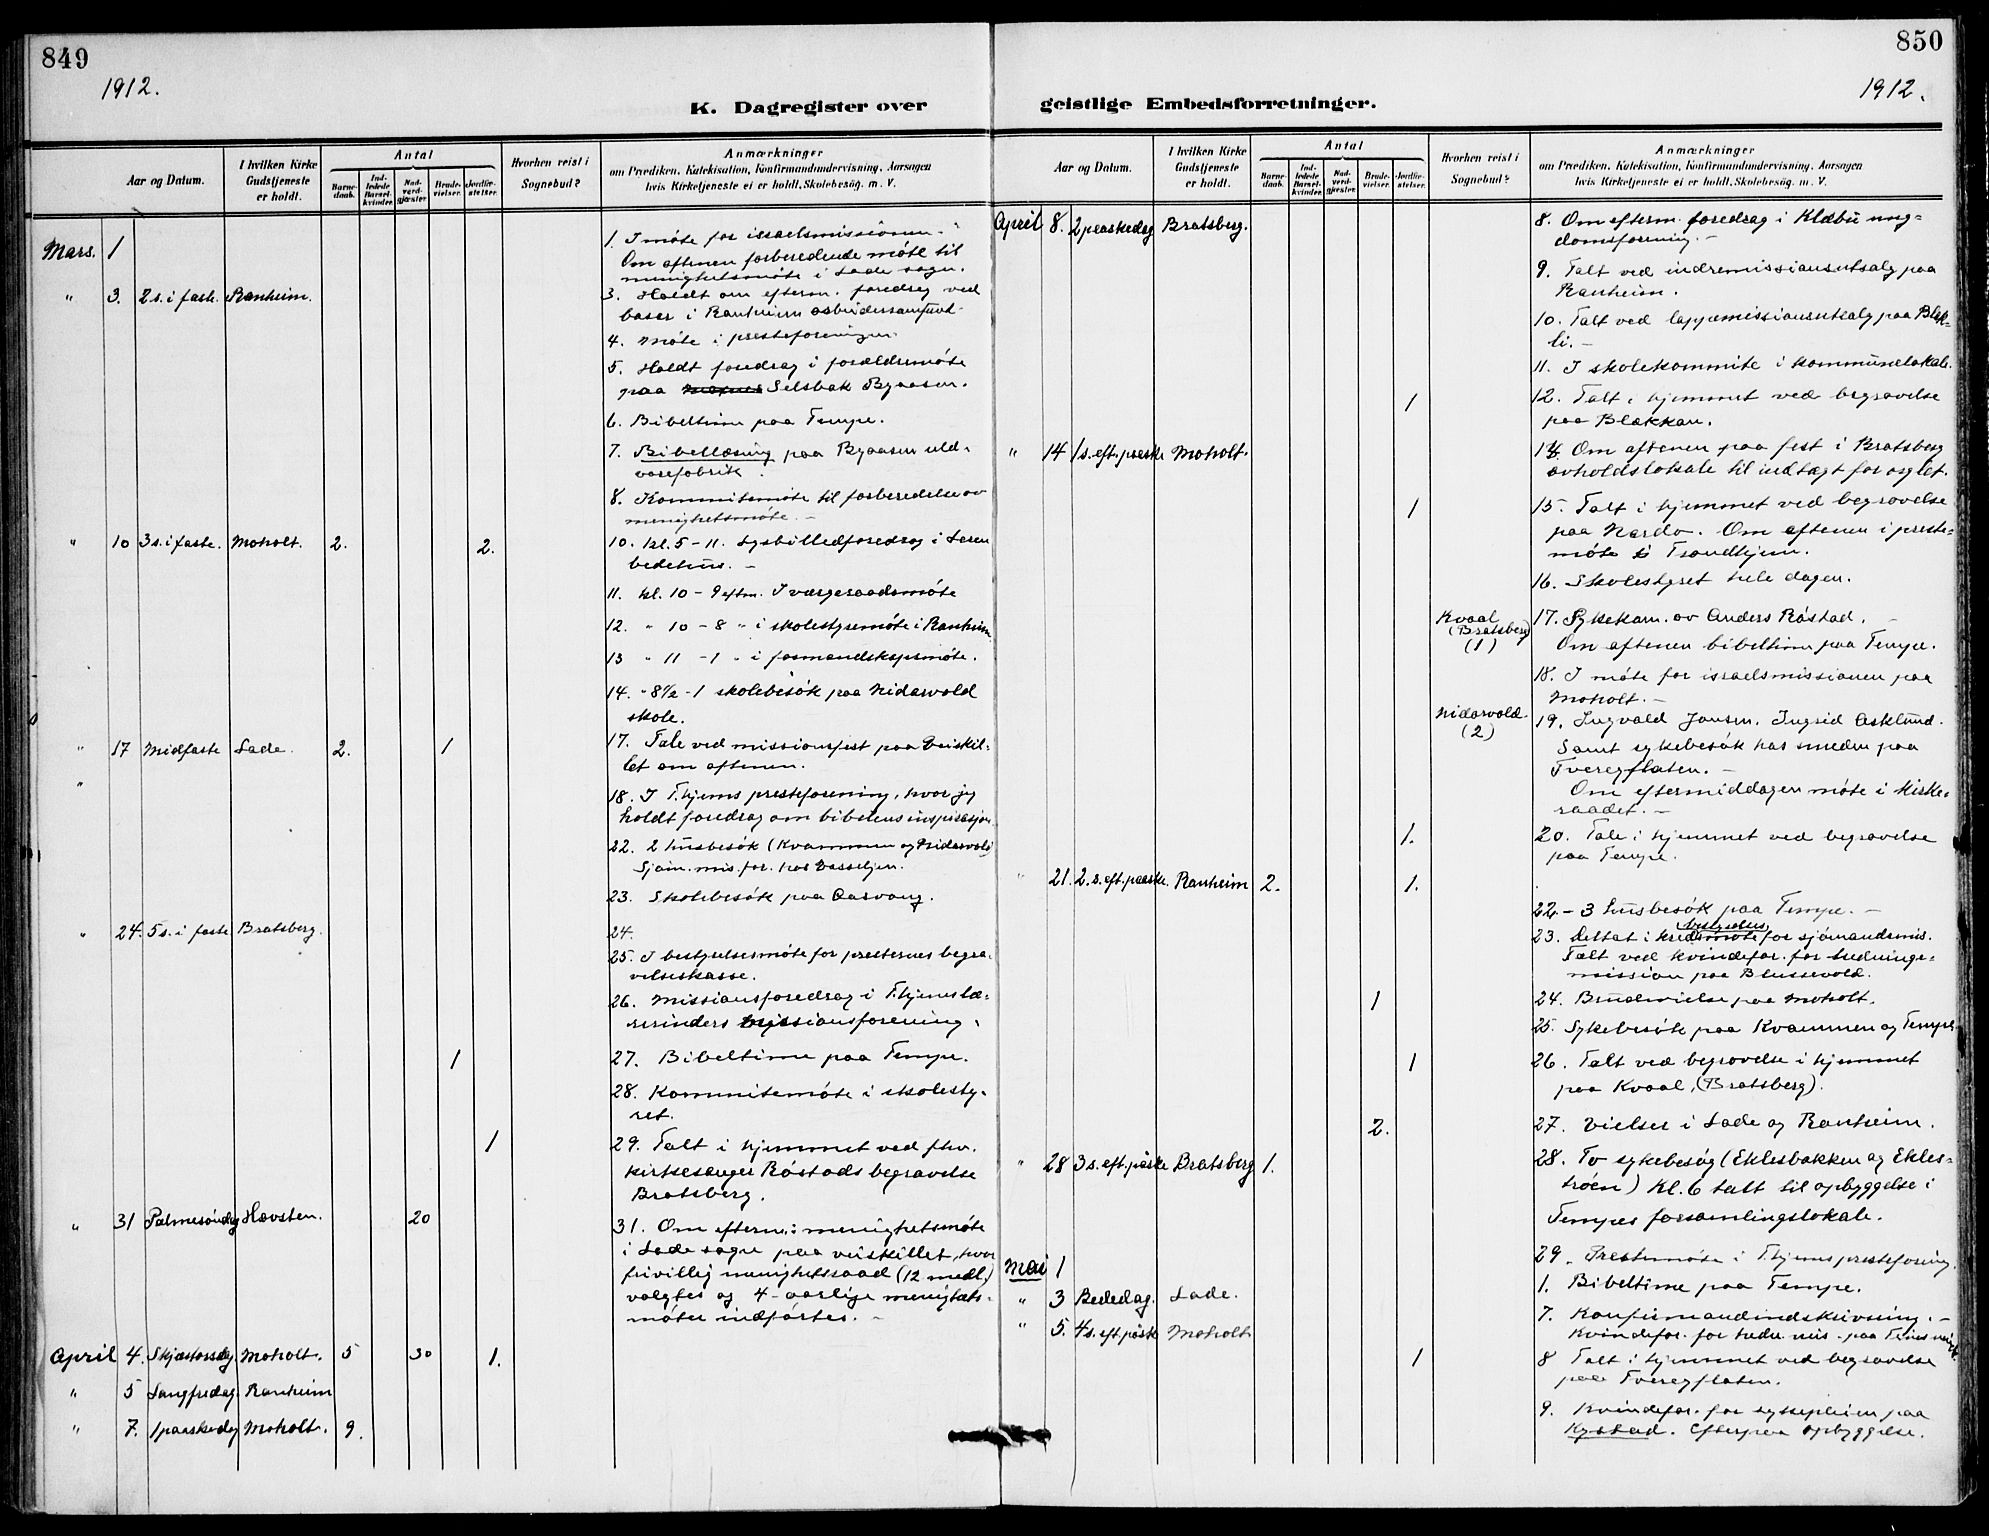 849
1912.
K. Dagregister over
Aar og Datum.
I hvilken Kirke Gudstjeneste er holdt.
Antal
Barne-daab.
Ind-ledede Barsel-kvinder.
Nad-verd-gjæster.
Brude-vielser.
Jordfæ-stelser.
Hvorhen reist i Sognebud?
Anmærkninger
om Prædiken, Katekisation, Konfirmandundervisning, Aarsagen
hvis Kirketjeneste ei er holdt, Skolebesøg. m. V.
Mars. 1
1. I møte for israelsmissionen.
Om aftenen forberedende møte til
menighetsmøte i Lade sogn.
" 3. 2 s. i faste. Ranheim.
3. Holdt om efterm. foredrag ved
basar i Ranheim arbeidersamfund.
4. Møte i presteforeningen.
5. Holdt foredrag i forældremøte
paa Selsbak Byaasen.
6. Bibeltime paa Tempe.
7. Bibellæsning paa Byaasen uld-
varefabrik.
8. Kommitemøte til forberedelse av
menighetsmøte. –
" 10 3 s. i faste. Moholt. 2. 2.
10. kl. 5 – 11. Lysbilledforedrag i
bedehus. –
11. kl. 10 – 9 eftm. I værgeraadsmøte
12. " 10 – 8 " i skolestyremøte i Ranheim
13 " 11 – 1 " i formandskapsmøte.
14. " 8½ – 1 skolebesøk paa Nidarvold
skole.
" 17 Midfaste Lade. 2. 1
17. Tale ved missionsfest paa Veiskil-
let om aftenen.
"
18. I T.hjems presteforening, hvor jeg
holdt foredrag om bibelens inspirasjon.
22. 2 husbesøk (Kvammen og Nidarvold)
Sjøm. mis. for. hos
23. Skolebesøk paa Aasvang.
" 24. 5 s. i faste Bratsberg.
24.
25. I bestyrelsesmøte for presternes begra-
velseskasse.
26. Missionsforedrag i T.hjems læ-
rerinders missionsforening.
1
27. Bibeltime paa Tempe.
28. Kommitemøte i skolesty-
ret.
1
29. Talt i hjemmet ved fhv.
kirkesanger Røstads begravelse
Bratsberg.
" 31 Palmesöndag Havsten. 20
31. Om efterm. i menighetsmøte
i Lade sogn paa veiskillet, hvor
frivillig menighetsraad (12 medl.)
valgtes og 4-aarlige menighets-
møter indførtes. –
April 4. Skjærtorsdag Moholt. 5 30 1.
" 5 Langfredag. Ranheim
" 7. 1 paaskedag Moholt. 9.
850
1912.
geistlige Embedsforretninger.
Aar og Datum.
I hvilken Kirke Gudstjeneste er holdt.
Antal
Barne-daab.
Ind-ledede Barsel-kvinder.
Nad-verd-gjæster.
Brude-vielser.
Jordfæ-stelser.
Hvorhen reist i Sognebud?
Anmærkninger
om Prædiken, Katekisation, Konfirmandundervisning, Aarsagen
hvis Kirketjeneste ei er holdt, Skolebesøg, m. V.
April 8. 2 paaskedag Bratsberg.
8. Om efterm. foredrag i Klæbu ung-
domsforening. –
9. Talt ved indremissionsutsalg paa
Ranheim.
10. Talt ved lappemissionsutsalg paa Blek-
li. –
11. I skolekommite i kommunelokale.
1
12. Talt i hjemmet ved begravelse
paa Blakkan.
" 14 1 s. eft. paaske Moholt.
14. Om aftenen paa fest i Bratsberg
avholdslokale til indtægt for orglet.
1
15. Talt i hjemmet ved begravelse
paa Nardo. Om aftenen i preste-
møte i Trondhjem.
16. Skolestyret hele dagen.
Kvaal (Bratsberg) (1)
17. Sykekom. av Anders Røstad.
Om aftenen bibeltime paa Tempe.
18. I møte for israelsmissionen paa
Moholt. –
Nidarvold. (2)
19. Ingvald Jonsen. Ingrid Asklund.
Samt sykebesøk hos smeden paa
Tveregflaten. –
Om eftermiddagen møte i kirke-
raadet. –
1.
20. Tale i hjemmet ved begravelse
paa Tempe.
" 21. 2. s. eft. paaske. Ranheim 2. 1.
22. – 3 husbesøk paa Tempe. –
bestyrelses
23. Deltat i kredsmøte for sjömandsmis.
Talt ved kvindefor. for hedninge-
mission paa Blussevold.
1
24. Brudevielse paa Moholt.
25. Sykebesøk paa Kvammen og Tempe
1
26. Talt ved begravelse i hjemmet
paa Kvaal, (Bratsberg).
2.
27. Vielser i Lade og Ranheim.
" 28 3 s. eft. påske Bratsberg 1.
28. To sykebesøg (Eklesbakken og Ekles-
troen) Kl. 6 talt til opbyggelse i
Tempes forsamlingslokale.
29. Prestemøte i T.hjems presteforening.
Mai 1
1. Bibeltime paa Tempe.
" 3 Bededag. Lade.
" 5. 4 s. eft. påske Moholt
7. Konfirmandindskrivning. –
Kvindefor. for hedn. mis. paa
1
8 Talt i hjemmet ved begravelse
paa Tveregflaten.
9. Kvindefor. for sykepleien paa
Kystad. Efterpaa opbyggelse.